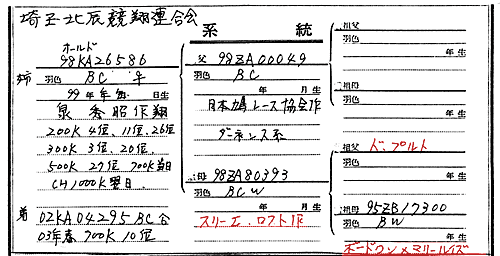 埼玉北辰競翔連合会
系 統
オールド
98KA26586
姉
羽色 BC ♀
99年生 日生
泉 秀昭作翔
200K 4位、11位、26位
300K 3位、20位
500K 27位 700K当日
CH1000K翌日
着 02KA04295 BC 合
03年春 700K 10位
父 98ZA00049
羽色 BC
年 月生
日本鳩レース協会作
ダーネンス系
母 98ZA80393
羽色 BCW
年 月生
スリーエ.ロフト作
祖父
羽色
年生
祖母
羽色
年生
祖父 ド.プルト
羽色
年生
祖母 95ZB17300
羽色 BW
年生
ボードワン×マリールイズ